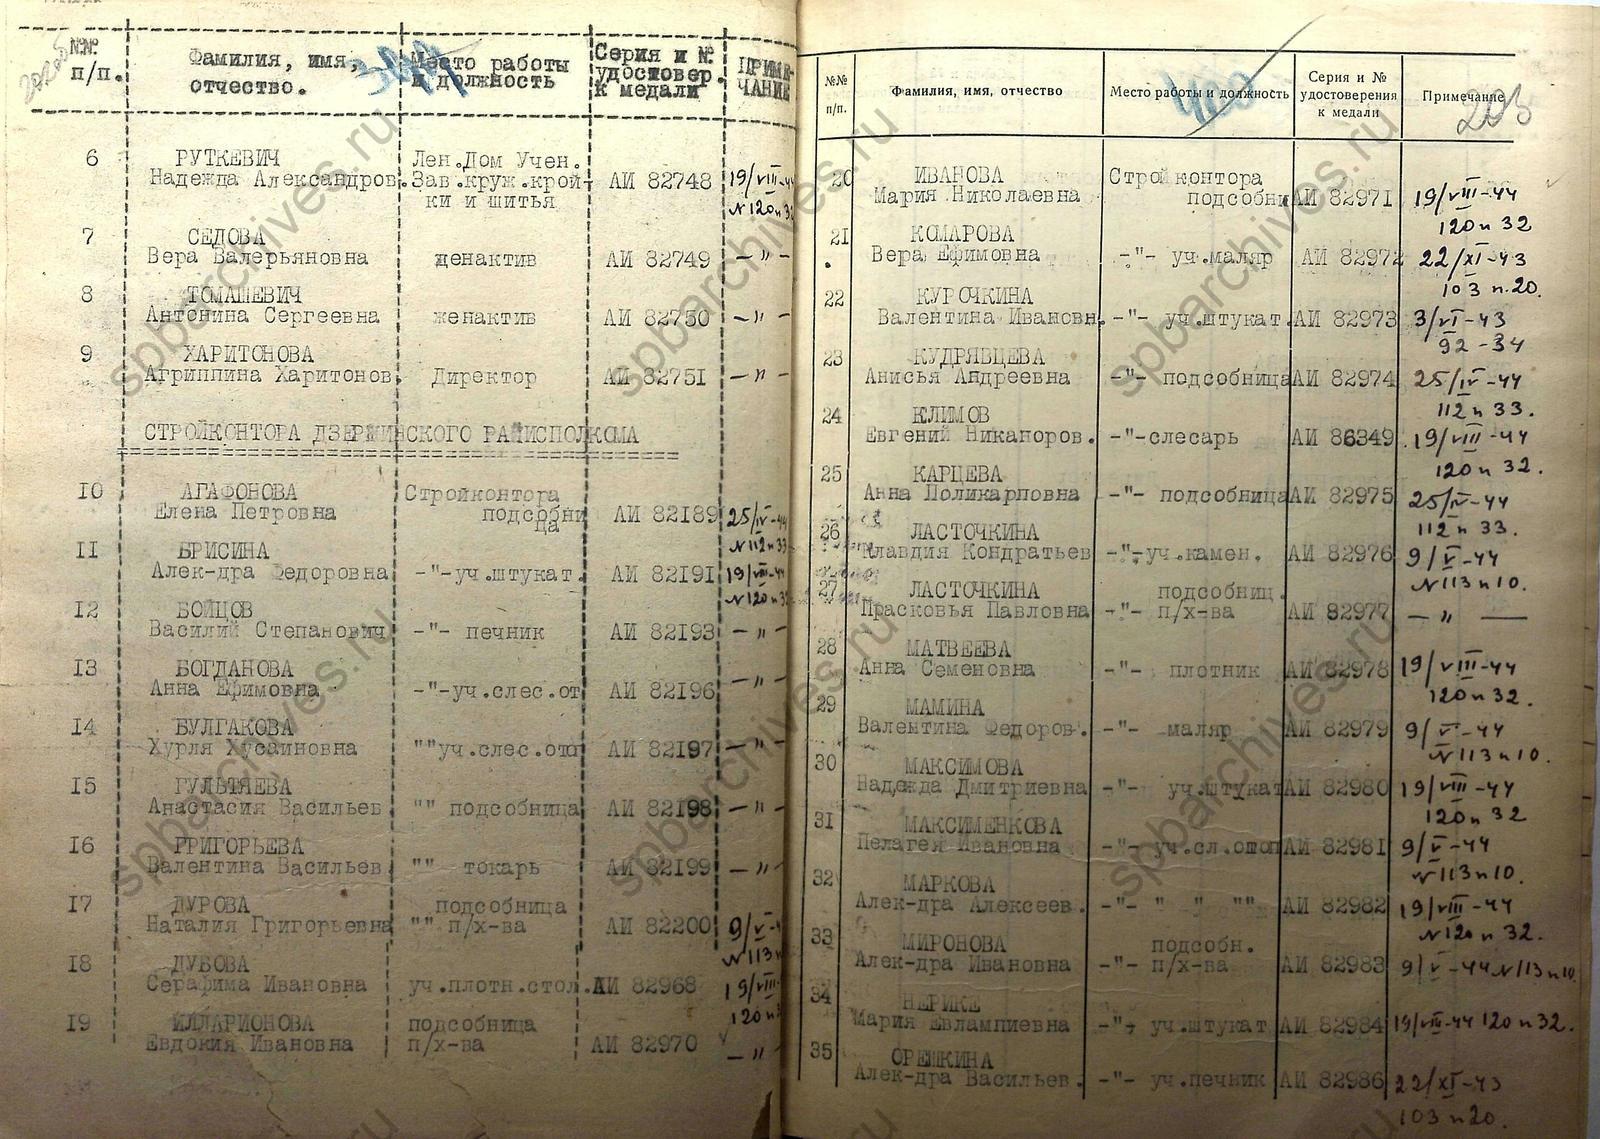 №№
п/п.
Фамилия, имя,
отчество.
Место работы
и должность
Серия и №
удостовер.
к медали
ПРИМЕ-
ЧАНИЕ
6 РУТКЕВИЧ Лен.Дом Учен.
Надежда Александров. Зав.круж.крой- АИ 82748 19/VIII-44
ки и шитья N120п32
7 СЕДОВА
Вера Валерьяновна женактив АИ 82749 —"—
8 ТОМАШЕВИЧ
Антонина Сергеевна женактив АИ 82750 —"—
9 ХАРИТОНОВА
Агриппина Харитонов. Директор АИ 82751 —"—
СТРОЙКОНТОРА ДЗЕРЖИНСКОГО РАЙИСПОЛКОМА
10 АГАФОНОВА Стройконтора
Елена Петровна подсобни АИ 82189 25/IV-44
ца N112п33
11 БРИСИНА
Алек-дра Федоровна -"-уч.штукат. АИ 82191 19/VIII-44
N120п32
12 БОЙЦОВ
Василий Степанович -"- печник АИ 82193 —"—
13 БОГДАНОВА
Анна Ефимовна -"-уч.слес.от АИ 82196 —"—
14 БУЛГАКОВА
Хурля Хусаиновна ""уч.слес.ото АИ 82197 —"—
15 ГУЛЬТЯЕВА
Анастасия Васильев. "" подсобница АИ 82198 —"—
16 ГРИГОРЬЕВА
Валентина Васильев. "" токарь АИ 82199 —"—
17 ДУРОВА подсобница
Наталия Григорьевна "" п/х-ва АИ 82200 9/V-4
N113п
18 ДУБОВА
Серафима Ивановна уч.плотн.стол. АИ 82968 19/VIII-
120п
19 ИЛЛАРИОНОВА подсобница
Евдокия Ивановна п/х-ва АИ 82970 —"—
203
№№
п/п.
Фамилия, имя, отчество
Место работы и должность
Серия и №
удостоверения
к медали
Примечание
20 ИВАНОВА Стройконтора
Мария Николаевна подсобни АИ 82971 19/VIII-44
120п32
21 КОМАРОВА
Вера Ефимовна -"- уч.маляр АИ 82972 22/XI-43
103 п.20.
22 КУРОЧКИНА
Валентина Ивановн. -"- уч.штукат. АИ 82973 3/VI-43
92-34
23 КУДРЯВЦЕВА
Анисья Андреевна -"- подсобница АИ 82974 25/IV-44
112п33.
24 КЛИМОВ
Евгений Никаноров. -"-слесарь АИ 86349 19/VIII-44
120п32.
25 КАРЦЕВА
Анна Поликарповна -"- подсобница АИ 82975 25/IV-44
112п33.
26 ЛАСТОЧКИНА
Клавдия Кондратьев -"-уч.камен. АИ 82976 9/V-44
N113п10.
27 ЛАСТОЧКИНА подсобниц.
Прасковья Павловна -"- п/х-ва АИ 82977 —"—
28 МАТВЕЕВА
Анна Семеновна -"- плотник АИ 82978 19/VIII-44
120п32.
29 МАМИНА
Валентина Федоров. -"- маляр АИ 82979 9/V-44
N113п10.
30 МАКСИМОВА
Надежда Дмитриевна -"- уч.штукат АИ 82980 19/VIII-44
120п32
31 МАКСИМЕНКОВА
Пелагея Ивановна -"- уч.сл.отоп АИ 82981 9/V-44
N113п10.
32 МАРКОВА
Алек-дра Алексеев. -"- " " "" АИ 82982 19/VIII-44
N120п32.
33 МИРОНОВА подсобн.
Алек-дра Ивановна -"- п/х-ва АИ 82983 9/V-44 N113п10
34 НЕРИКЕ
Мария Евлампиевна -"- уч.штукат АИ 82984 19/VIII-44 120п32.
35 ОРЕШКИНА
Алек-дра Васильев. -"- уч.печник АИ 82986 22/XI-43
103п20.
spbarchives.ru